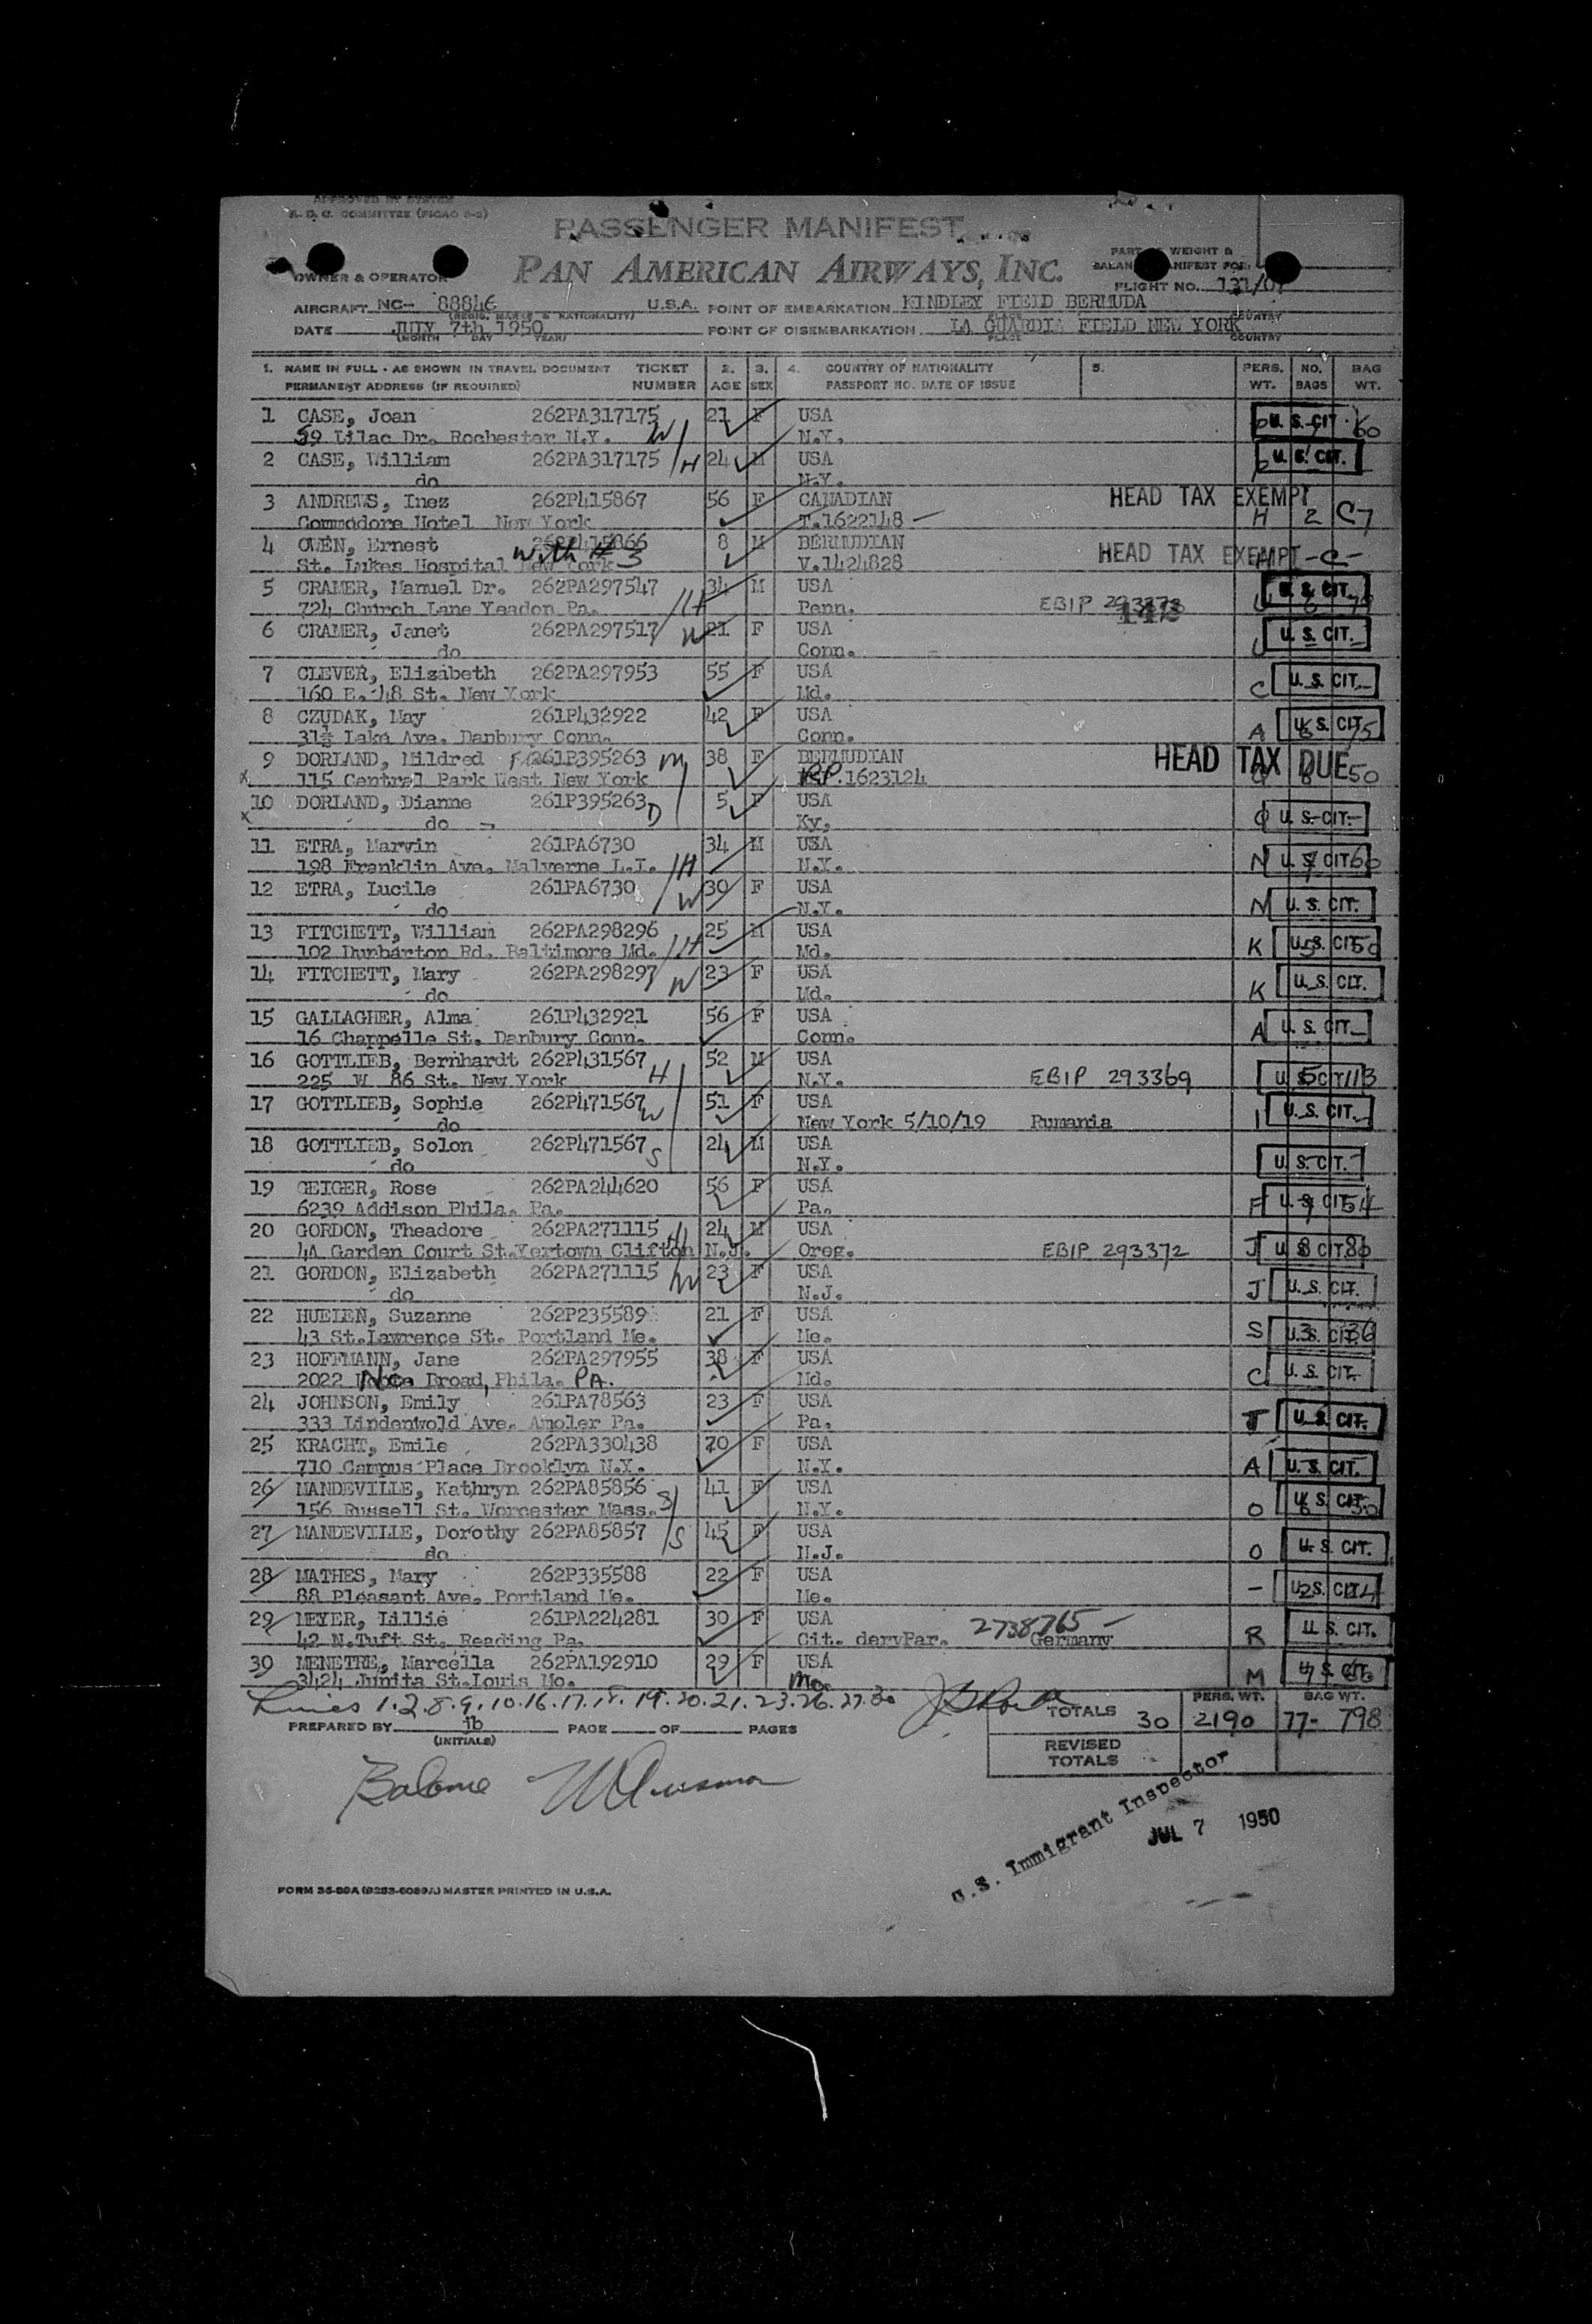 APPROVED BY SYSTEM
A. D. C. COMMITTEE (PICAO 2-2)
PASSENGER MANIFEST
PAN AMERICAN AIRWAYS, INC.
OWNER & OPERATOR
PART WEIGHT &
MANIFEST FOR
FLIGHT NO. 131/07
AIRCRAFT NC- 88846 U.S.A. POINT OF EMBARKATION KINDLEY FIELD BERMUDA
(REGIS. MARKS & NATIONALITY) PLACE COUNTRY
DATE JULY 7th 1950 POINT OF DISEMBARKATION LA GUARDIA FIELD NEW YORK
(MONTH DAY YEAR) PLACE COUNTRY
1. NAME IN FULL - AS SHOWN IN TRAVEL DOCUMENT TICKET 2. 3. 4. COUNTRY OF NATIONALITY 5. PERS. NO. BAG
PERMANENT ADDRESS (IF REQUIRED) NUMBER AGE SEX PASSPORT NO. DATE OF ISSUE WT. BAGS WT.
1 CASE, Joan 262PA317175 21 F USA U. S. CIT. 60
59 Lilac Dr. Rochester N.Y. W N.Y.
2 CASE, William 262PA317175 H 24 M USA U. S. CIT.
do N.Y.
3 ANDREWS, Inez 262P415867 56 F CANADIAN HEAD TAX EXEMPT
Commodore Hotel New York T.1622148 H 2 C7
4 OWEN, Ernest 262P415866 8 M BERMUDIAN HEAD TAX EXEMPT -C-
St. Lukes Hospital New York with # 3 V.1424828
5 CRAMER, Manuel Dr. 262PA297547 34 M USA U. S. CIT.
724 Church Lane Yeadon Pa. H Penn. EBIP
6 CRAMER, Janet 262PA297517 W 21 F USA U. S. CIT.
do Conn.
7 CLEVER, Elizabeth 262PA297953 55 F USA U. S. CIT.
160 E. 48 St. New York Md. C
8 CZUDAK, May 261P432922 42 F USA U. S. CIT. 75
31½ Lake Ave. Danbury Conn. Conn. A
9 DORLAND, Mildred 261P395263 M 38 F BERMUDIAN HEAD TAX DUE 50
x 115 Central Park West New York PP.1623124
10 DORLAND, Dianne 261P395263 D 5 F USA U. S. CIT.
x do Ky,
11 ETRA, Marvin 261PA6730 34 M USA N U. S. CIT. 60
198 Franklin Ave. Malverne L.I. H N.Y.
12 ETRA, Lucile 261PA6730 W 30 F USA N U. S. CIT.
do N.Y.
13 FITCHETT, William 262PA298296 25 M USA K U. S. CIT. 50
102 Dumbarton Rd. Baltimore Md. H Md.
14 FITCHETT, Mary 262PA298297 W 23 F USA K U. S. CIT.
do Md.
15 GALLAGHER, Alma 261P432921 56 F USA A U. S. CIT.
16 Chappelle St. Danbury Conn. Conn.
16 GOTTLIEB, Bernhardt 262P431567 52 M USA U. S. CIT. 113
225 W. 86 St. New York H N.Y. EBIP 293369
17 GOTTLIEB, Sophie 262P471567 W 51 F USA I U. S. CIT.
do New York 5/10/19 Rumania
18 GOTTLIEB, Solon 262P471567 S 24 M USA U. S. CIT.
do N.Y.
19 GEIGER, Rose 262PA244620 56 F USA F U. S. CIT. 54
6239 Addison Phila. Pa. Pa.
20 GORDON, Theadore 262PA271115 H 24 M USA J U. S. CIT. 80
4A Garden Court St.Yertown Clifton N.J. Oreg. EBIP 293372
21 GORDON, Elizabeth 262PA271115 W 23 F USA J U. S. CIT.
do N.J.
22 HUELEN, Suzanne 262P235589 21 F USA S U. S. CIT. 36
43 St.Lawrence St. Portland Me. Me.
23 HOFFMANN, Jane 262PA297955 38 F USA C U. S. CIT.
2022 No. Broad, Phila. PA. Md.
24 JOHNSON, Emily 261PA78563 23 F USA J U. S. CIT.
333 Lindenwold Ave. Ambler Pa. Pa.
25 KRACHT, Emile 262PA330438 70 F USA A U. S. CIT.
710 Campus Place Brooklyn N.Y. N.Y.
26 MANDEVILLE, Kathryn 262PA85856 41 F USA O U. S. CIT. 50
156 Russell St. Worcester Mass. S N.Y.
27 MANDEVILLE, Dorothy 262PA85857 S 45 F USA O U. S. CIT.
do N.J.
28 MATHES, Mary 262P335588 22 F USA - U. S. CIT.
88 Pleasant Ave. Portland Me. Me.
29 MEYER, Lillie 261PA224281 30 F USA 2738765 R U. S. CIT.
42 N.Tuft St. Reading Pa. Cit. dervPar. Germany
30 MENETRE, Marcella 262PA192910 29 F USA M U. S. CIT.
3424 Junita St.Louis Mo. Mo.
Lines 1.2.8.9.10.16.17.18.19.20.21.23.26.27.30
TOTALS 30 PERS. WT. 2190 BAG WT. 77- 798
PREPARED BY jb PAGE OF PAGES
(INITIALS)
REVISED
TOTALS
U.S. Immigrant Inspector
JUL 7 1950
FORM 36-89A (9253-6089A) MASTER PRINTED IN U.S.A.